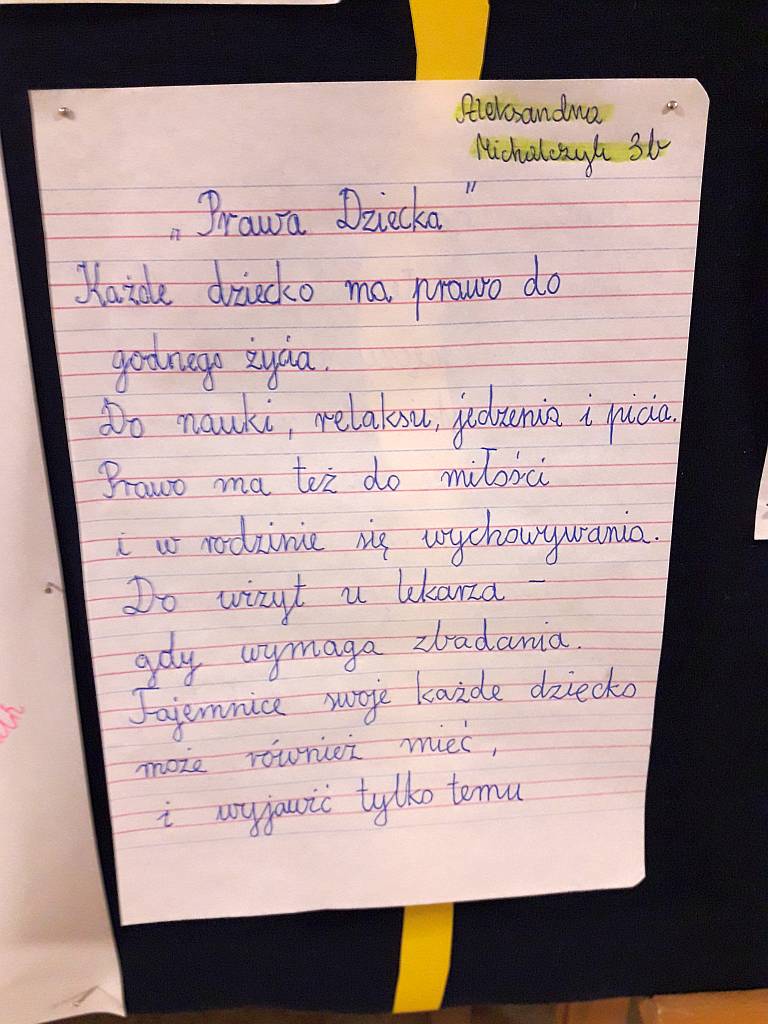 Aleksandra
Michalczyk 3b
„Prawa Dziecka"
Każde dziecko ma prawo do
godnego życia.
Do nauki, relaksu, jedzenia i picia.
Prawo ma też do miłości
i w rodzinie się wychowywania.
Do wizyt u lekarza –
gdy wymaga zbadania.
Tajemnice swoje każde dziecko
może również mieć,
i wyjawić tylko temu